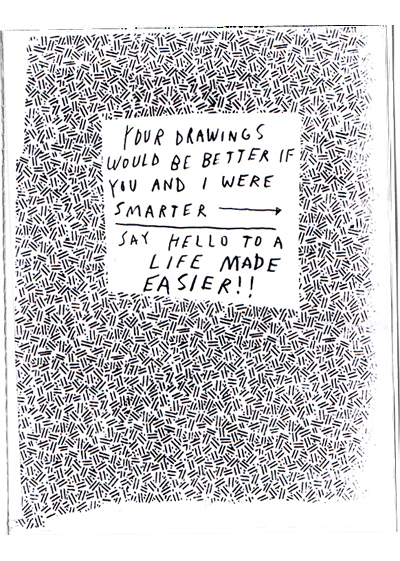 YOUR DRAWINGS
WOULD BE BETTER IF
YOU AND I WERE
SMARTER →
SAY HELLO TO A
LIFE MADE
EASIER!!